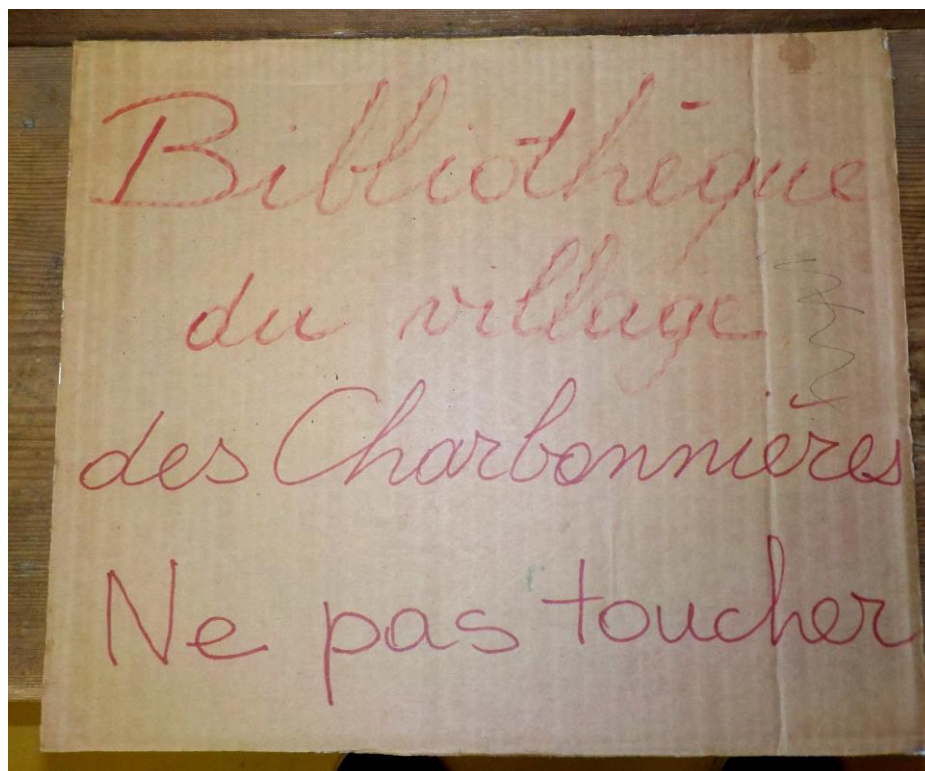 Bibliothèque
du village
des Charbonnières
Ne pas toucher